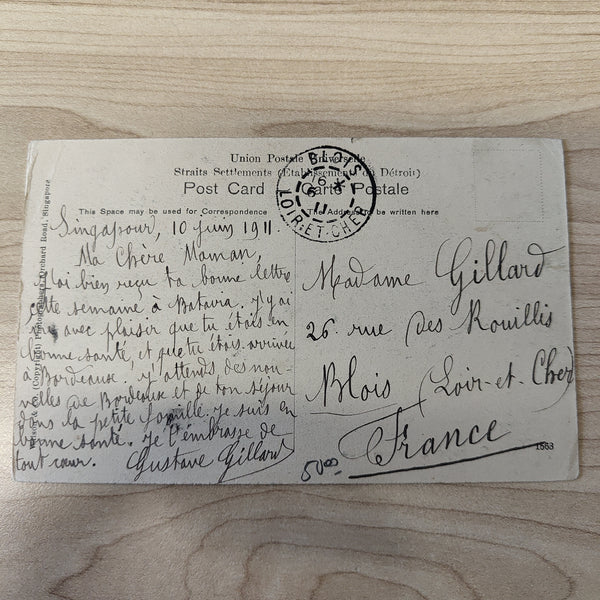 Union Postale Universelle
Straits Settlements (Etablissements du Détroit)
Post Card Carte Postale
This Space may be used for Correspondence
The Address to be written here
Orchard Road, Singapore
BLOIS
LOIR-ET-CHER
Singapour, 10 juin 1911.
Ma Chère Maman,
J'ai bien reçu ta bonne lettre
cette semaine à Batavia. J'y ai
vu avec plaisir que tu étais en
bonne santé, et que tu étais arrivée
à Bordeaux. J'y attends des nou-
velles de Bordeaux et de ton séjour
dans la petite famille. Je suis en
bonne santé. Je t'embrasse de
tout cœur.
Gustave Gillard
Madame Gillard
26 rue des Rouillis
Blois (Loir-et-Cher)
France
1863